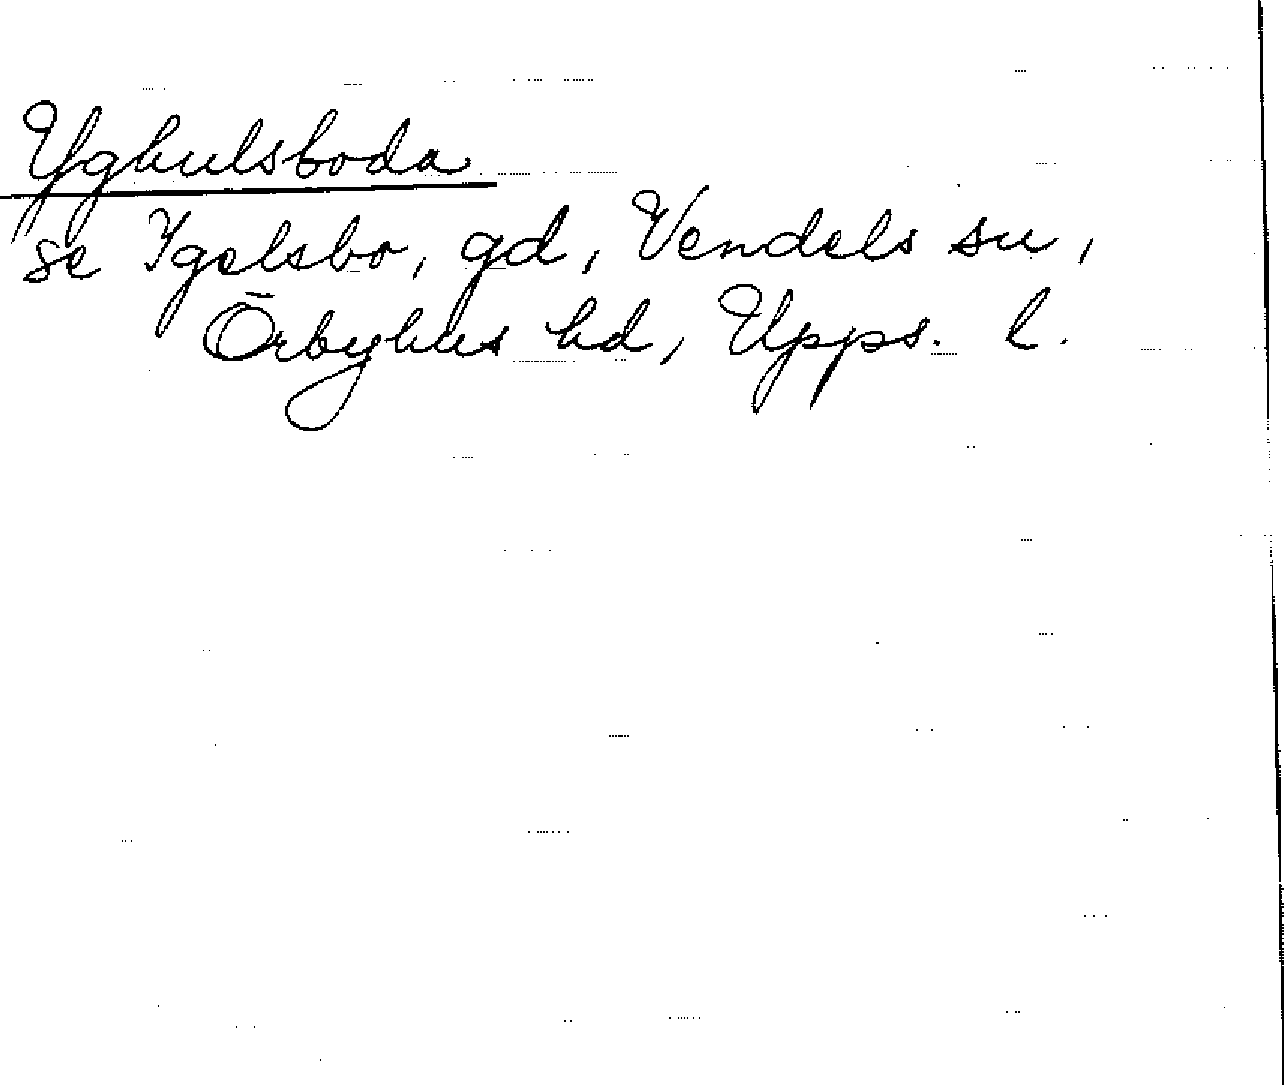 Yghulsboda
se Igelsbo, gd, Vendels sn,
Örbyhus hd, Upps. l.